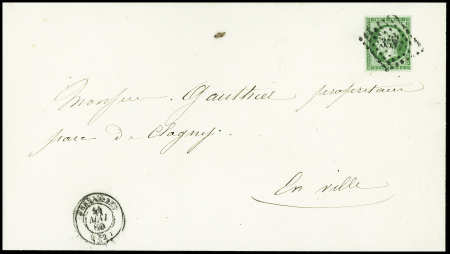 Monsieur Gauthier propriétaire
parc de Clagny.
En ville
MAI
60